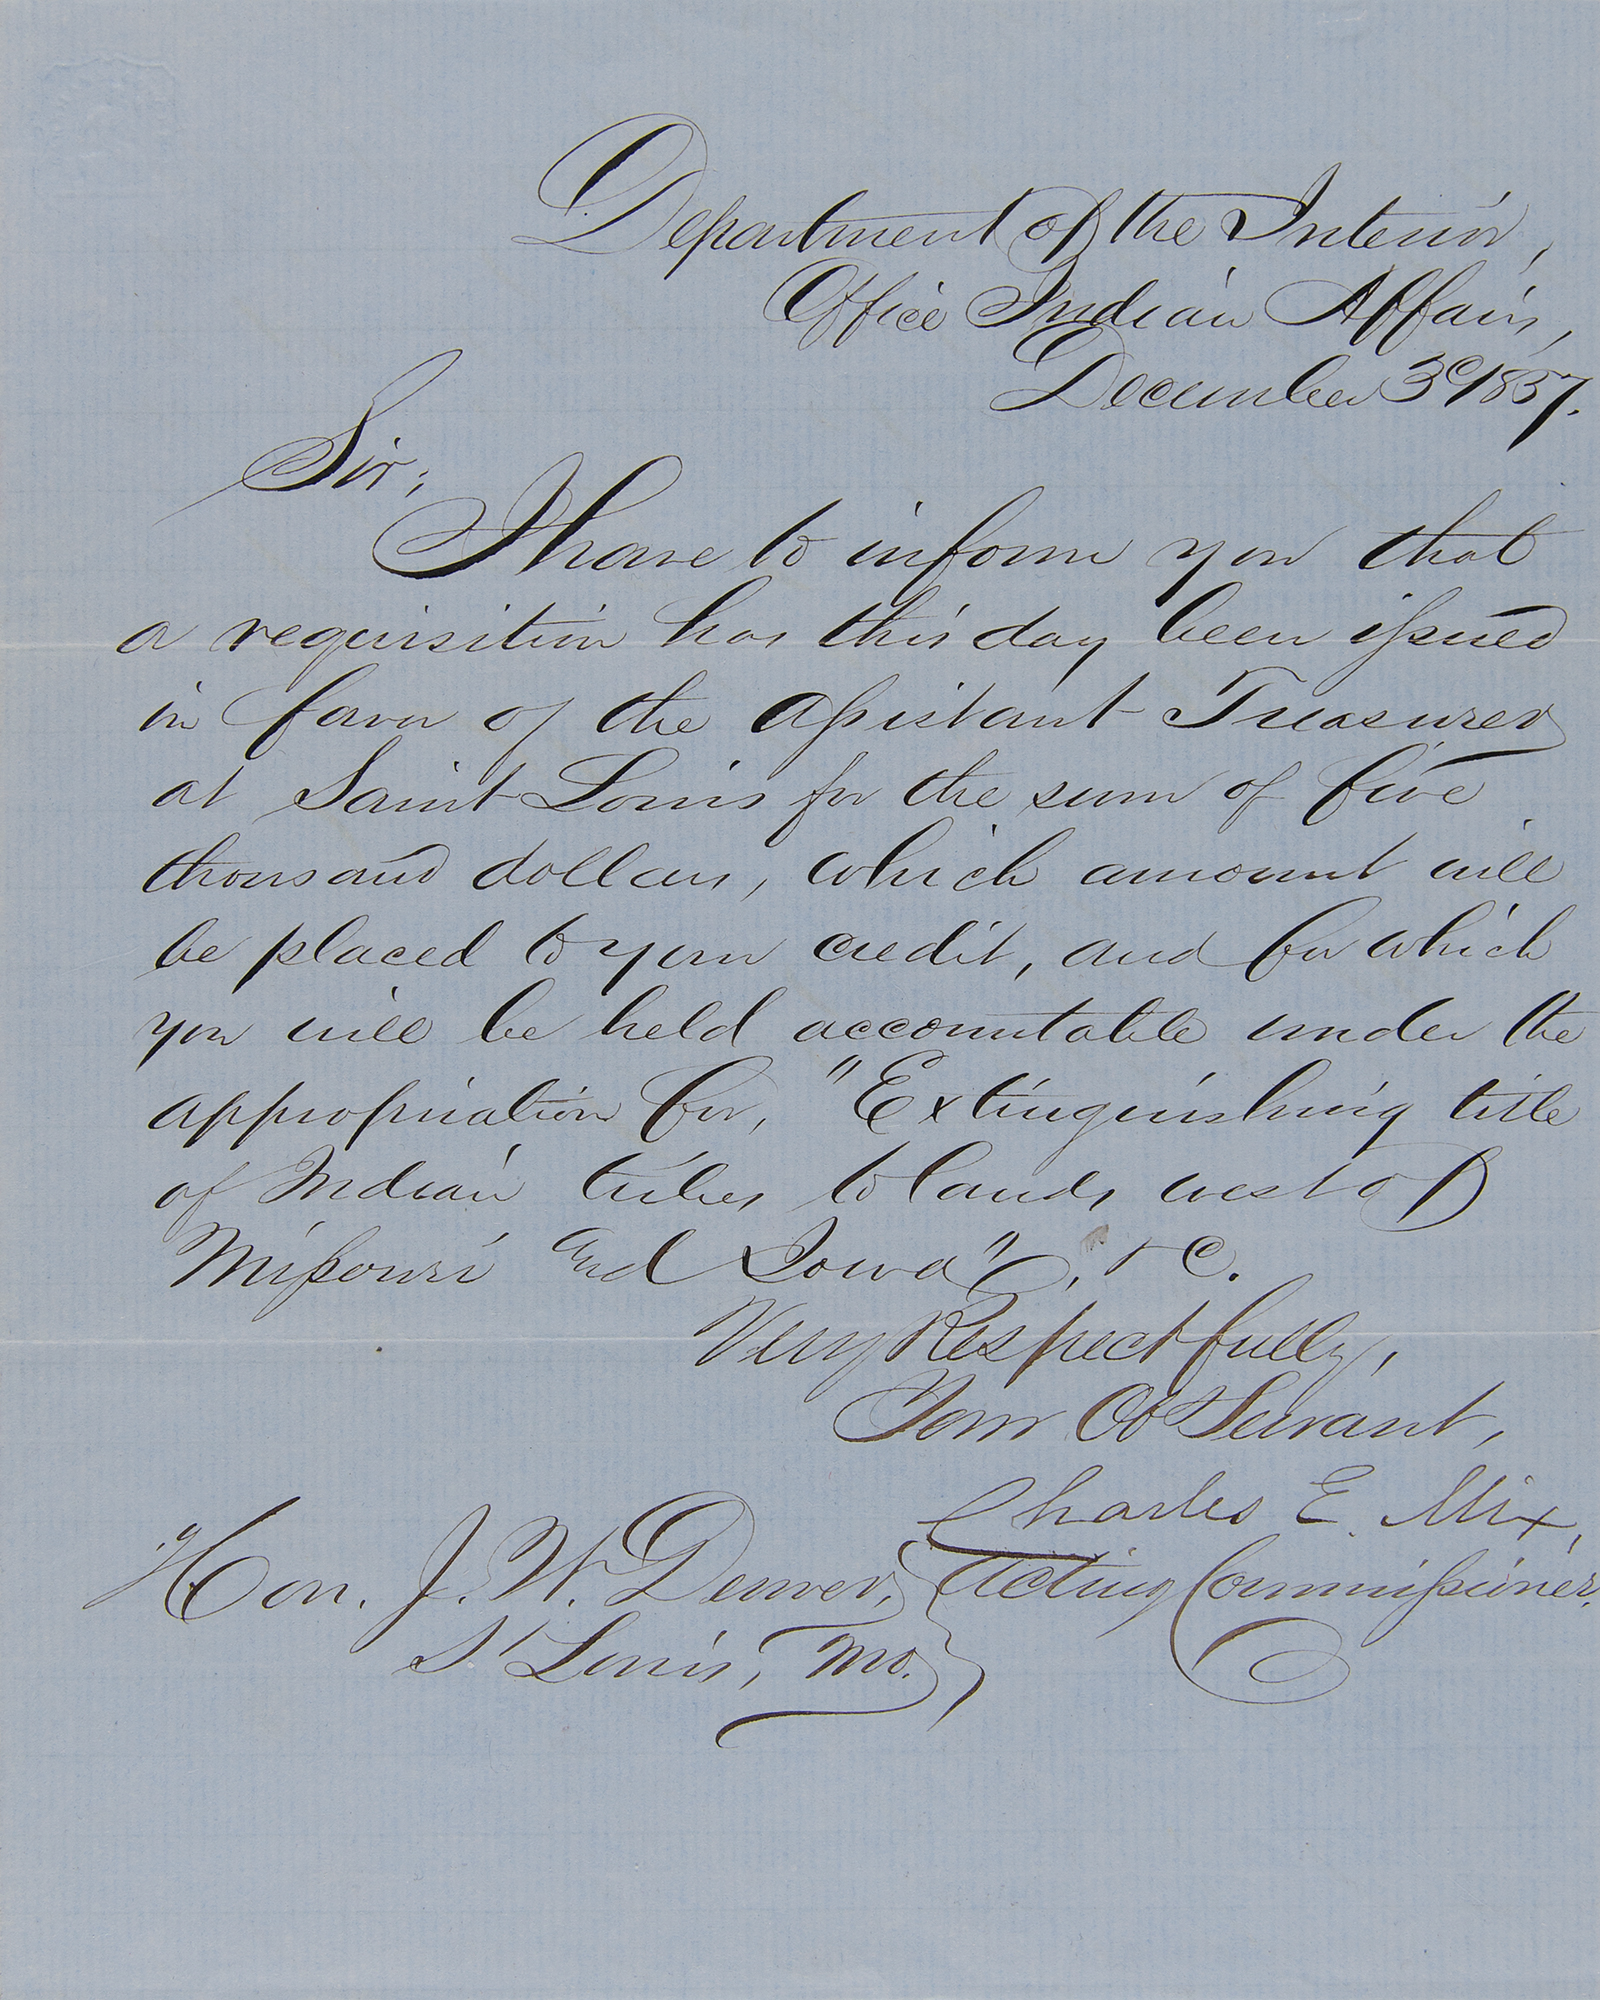 Department of the Interior,
Office Indian Affairs,
December 3d 1857.
Sir;
I have to inform you that
a requisition has this day been issued
in favor of the Assistant Treasurer
at Saint Louis for the sum of five
thousand dollars, which amount will
be placed to your credit, and for which
you will be held accountable under the
appropriation for, "Extinguishing title
of Indian tribes to lands west of
Missouri and Iowa", &c.
Very Respectfully,
Your Obt Servant,
Charles E. Mix,
Acting Commissioner.
Hon. J. W. Denver,
St Louis, Mo.